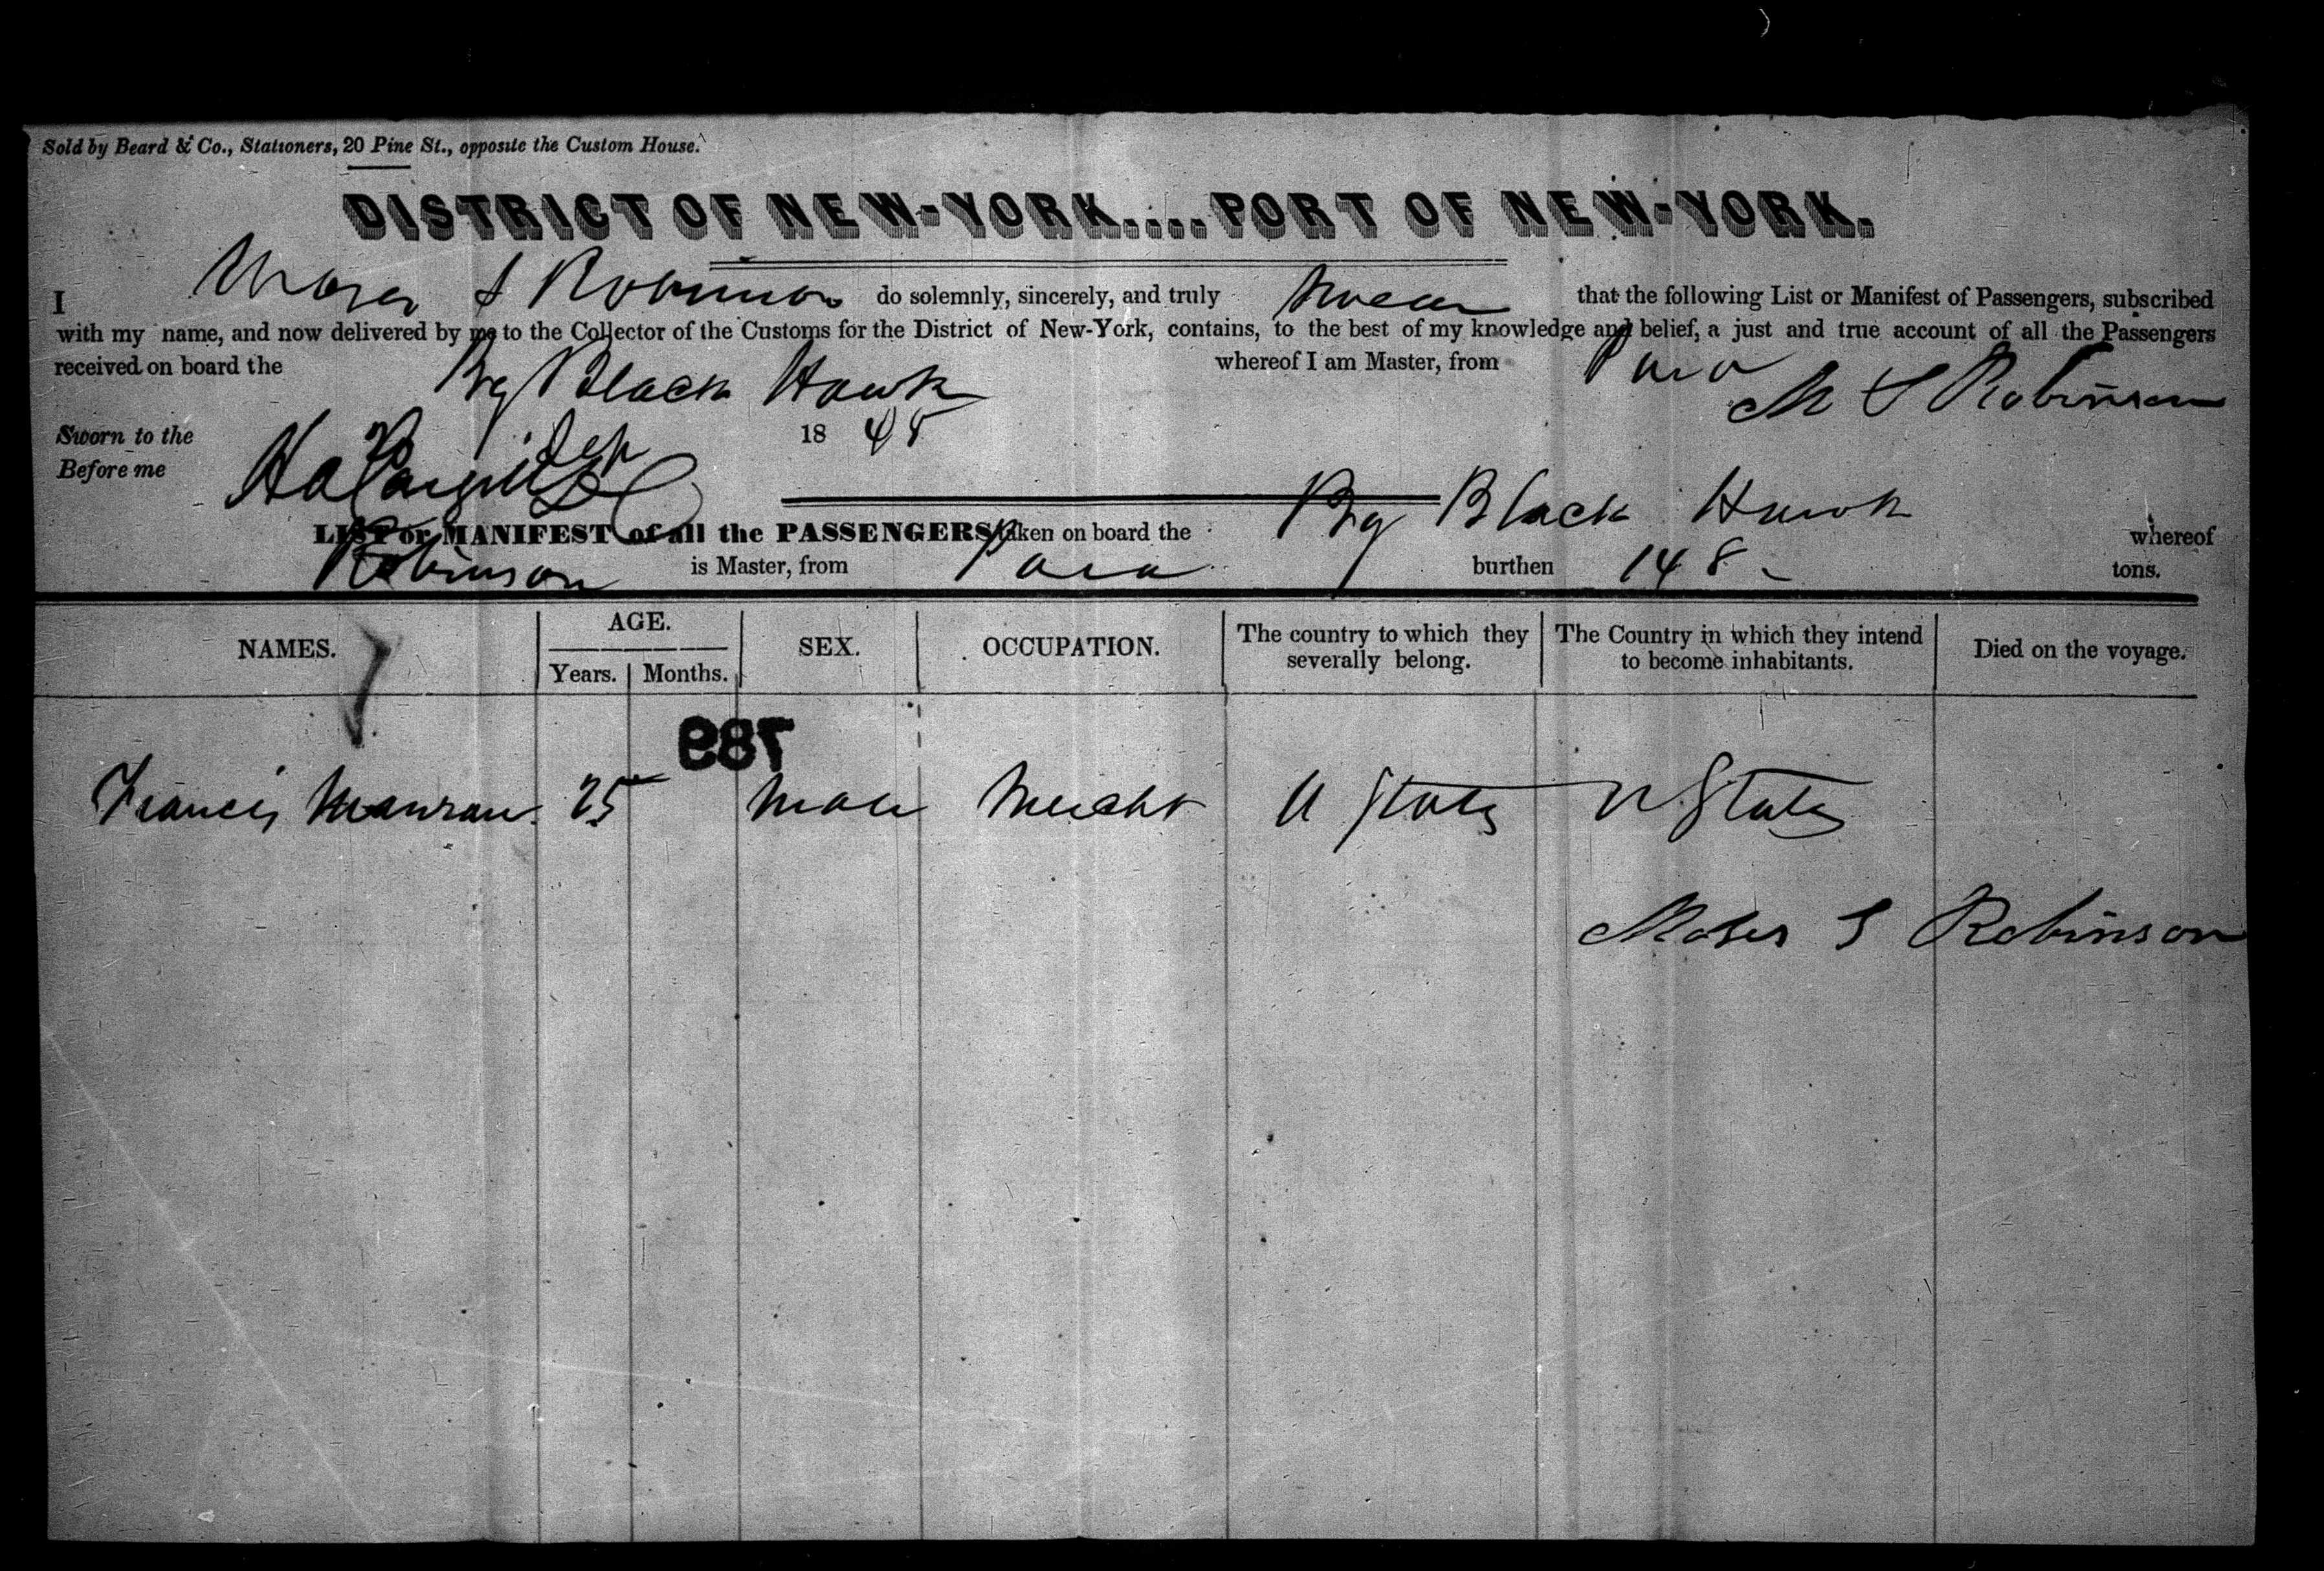 Sold by Beard & Co., Stationers, 20 Pine St., opposite the Custom House.
DISTRICT OF NEW-YORK....PORT OF NEW-YORK.
I Moses S Robinson do solemnly, sincerely, and truly swear that the following List or Manifest of Passengers, subscribed
with my name, and now delivered by me to the Collector of the Customs for the District of New-York, contains, to the best of my knowledge and belief, a just and true account of all the Passengers
received on board the Brg Black Hawk whereof I am Master, from Para
M S Robinson
Sworn to the 1848
Before me
LIST or MANIFEST of all the PASSENGERS taken on board the Brg Black Hawk whereof
Robinson is Master, from Para burthen 148 tons.
NAMES. AGE. SEX. OCCUPATION. The country to which they severally belong. The Country in which they intend to become inhabitants. Died on the voyage.
Years. Months.
789
Francis 25 Male Mercht U States U States
Moses S Robinson